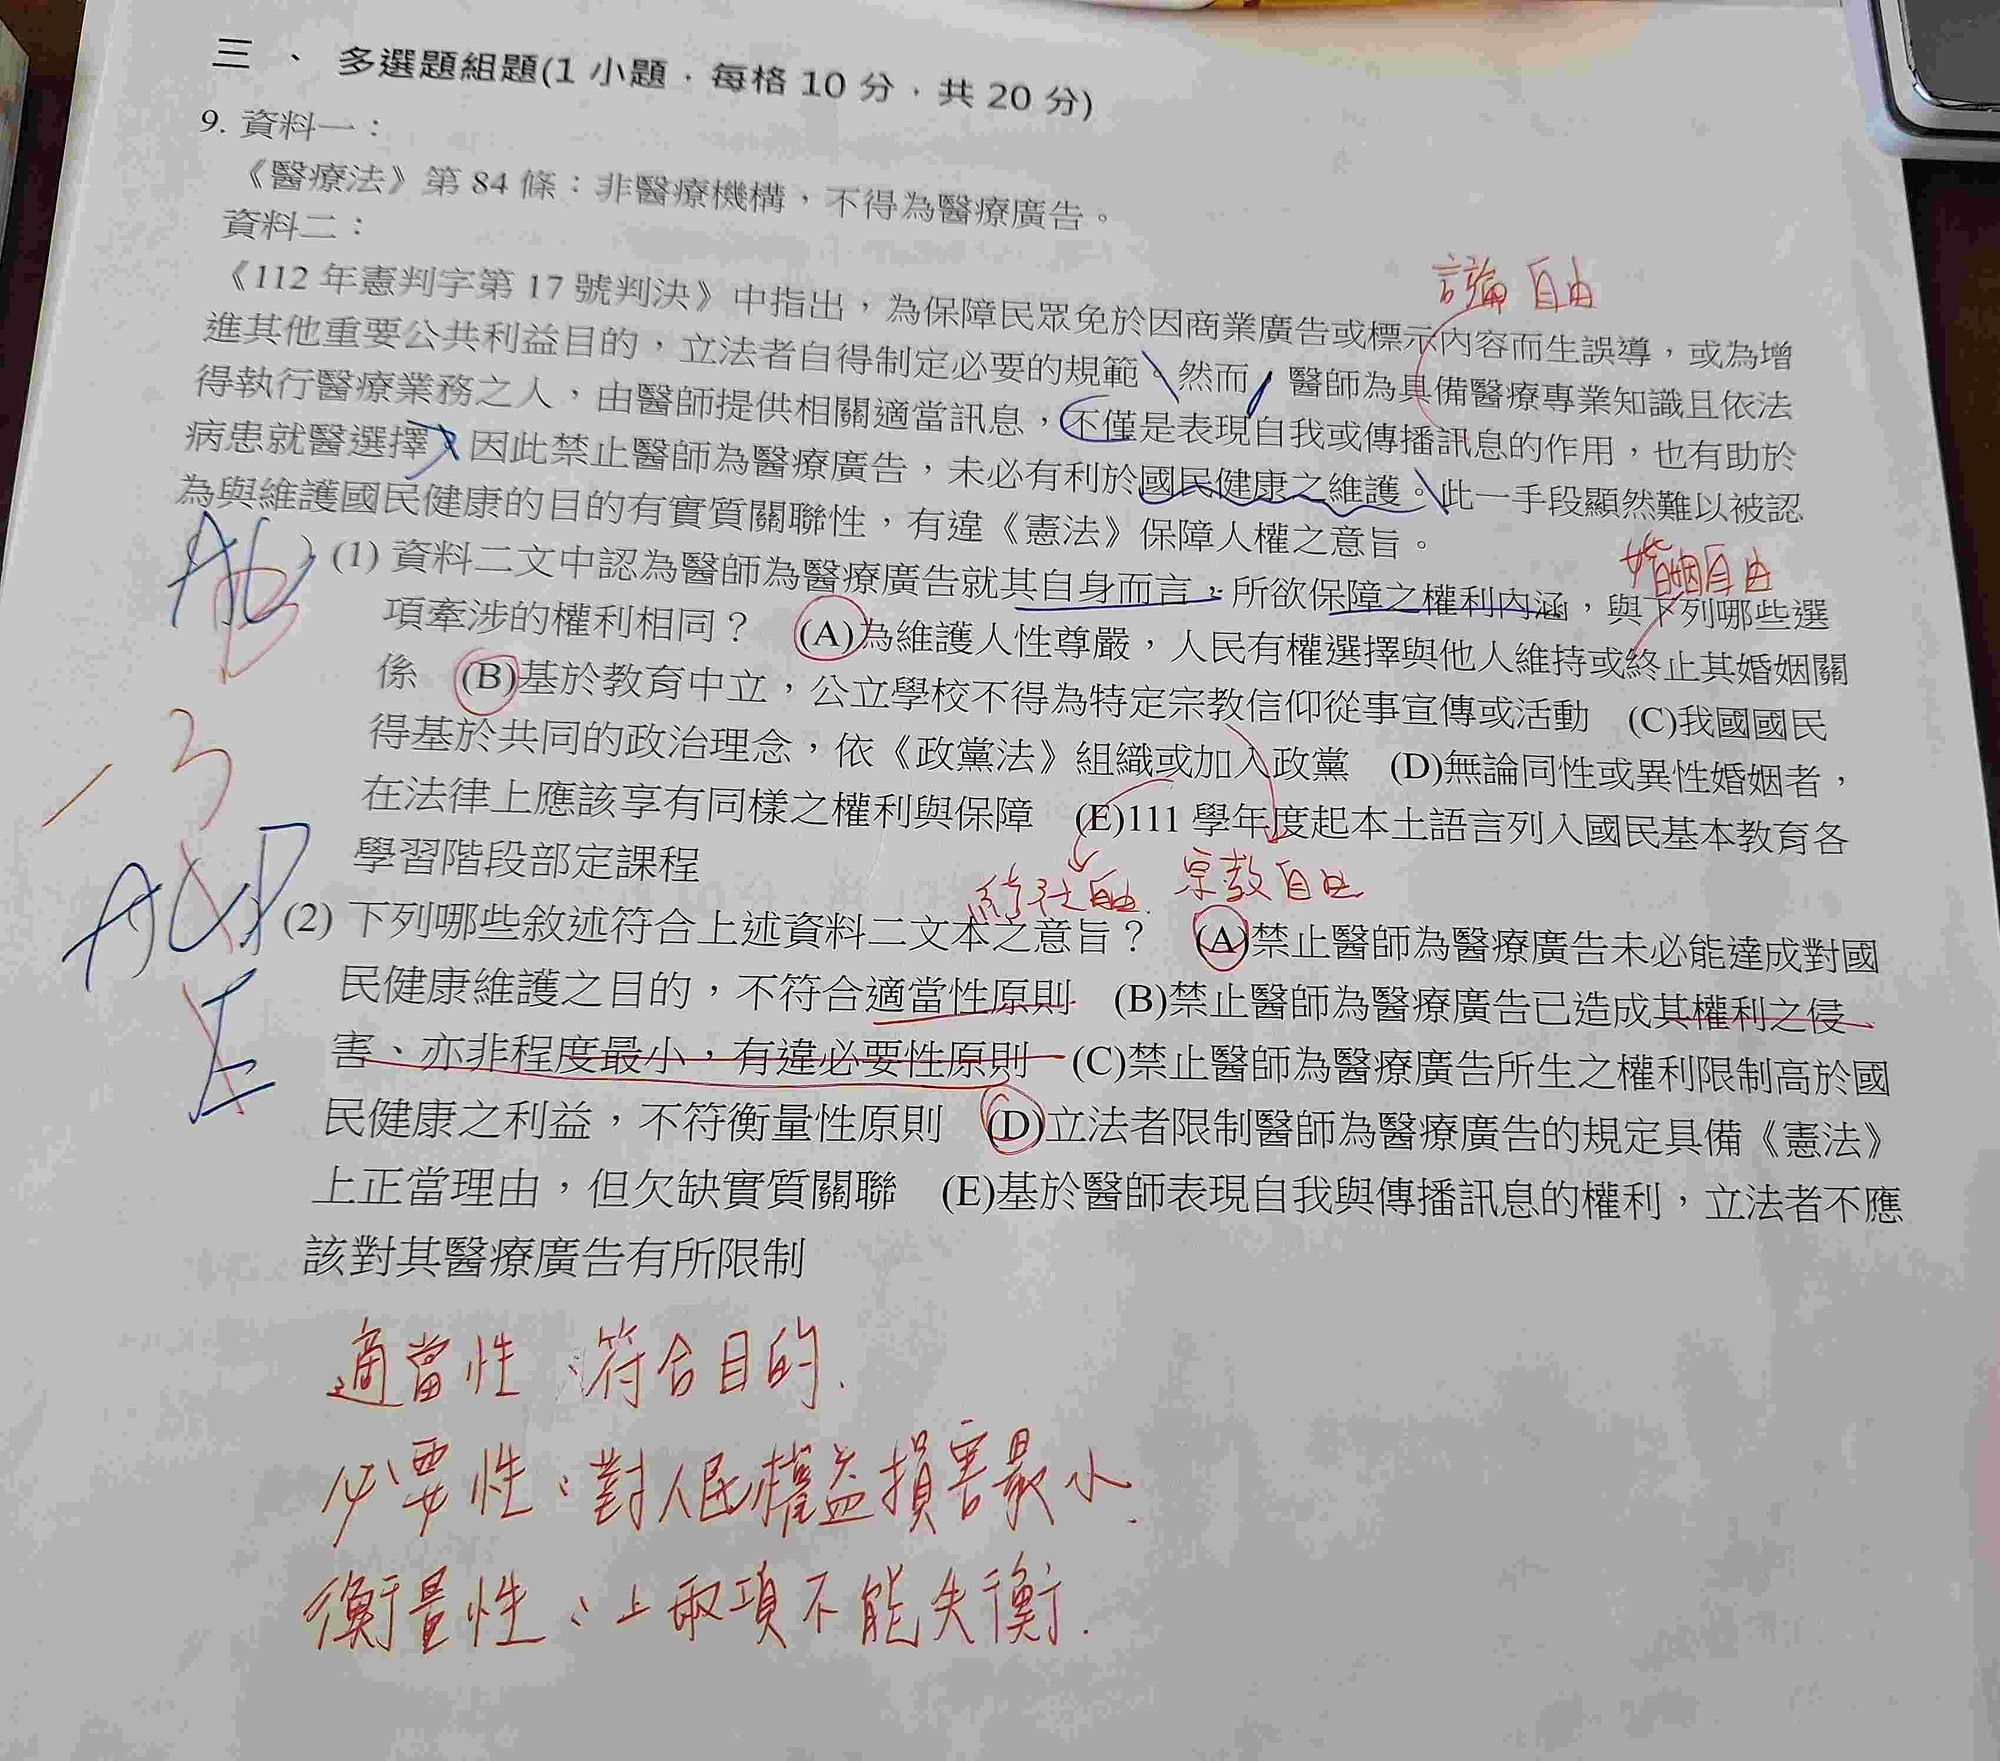 三、多選題組題(1 小題，每格 10 分，共 20 分)
9. 資料一：
《醫療法》第 84 條：非醫療機構，不得為醫療廣告。
資料二：
言論自由
《112 年憲判字第 17 號判決》中指出，為保障民眾免於因商業廣告或標示內容而生誤導，或為增
進其他重要公共利益目的，立法者自得制定必要的規範。然而，醫師為具備醫療專業知識且依法
得執行醫療業務之人，由醫師提供相關適當訊息，不僅是表現自我或傳播訊息的作用，也有助於
病患就醫選擇，因此禁止醫師為醫療廣告，未必有利於國民健康之維護。此一手段顯然難以被認
為與維護國民健康的目的有實質關聯性，有違《憲法》保障人權之意旨。
婚姻自由
(1) 資料二文中認為醫師為醫療廣告就其自身而言，所欲保障之權利內涵，與下列哪些選
項牽涉的權利相同？ (A)為維護人性尊嚴，人民有權選擇與他人維持或終止其婚姻關
係 (B)基於教育中立，公立學校不得為特定宗教信仰從事宣傳或活動 (C)我國國民
得基於共同的政治理念，依《政黨法》組織或加入政黨 (D)無論同性或異性婚姻者，
在法律上應該享有同樣之權利與保障 (E)111 學年度起本土語言列入國民基本教育各
學習階段部定課程
結社自由 宗教自由
(2) 下列哪些敘述符合上述資料二文本之意旨？ (A)禁止醫師為醫療廣告未必能達成對國
民健康維護之目的，不符合適當性原則 (B)禁止醫師為醫療廣告已造成其權利之侵
害、亦非程度最小，有違必要性原則 (C)禁止醫師為醫療廣告所生之權利限制高於國
民健康之利益，不符衡量性原則 (D)立法者限制醫師為醫療廣告的規定具備《憲法》
上正當理由，但欠缺實質關聯 (E)基於醫師表現自我與傳播訊息的權利，立法者不應
該對其醫療廣告有所限制
適當性：符合目的.
必要性：對人民權益損害最小.
衡量性：上兩項不能失衡.